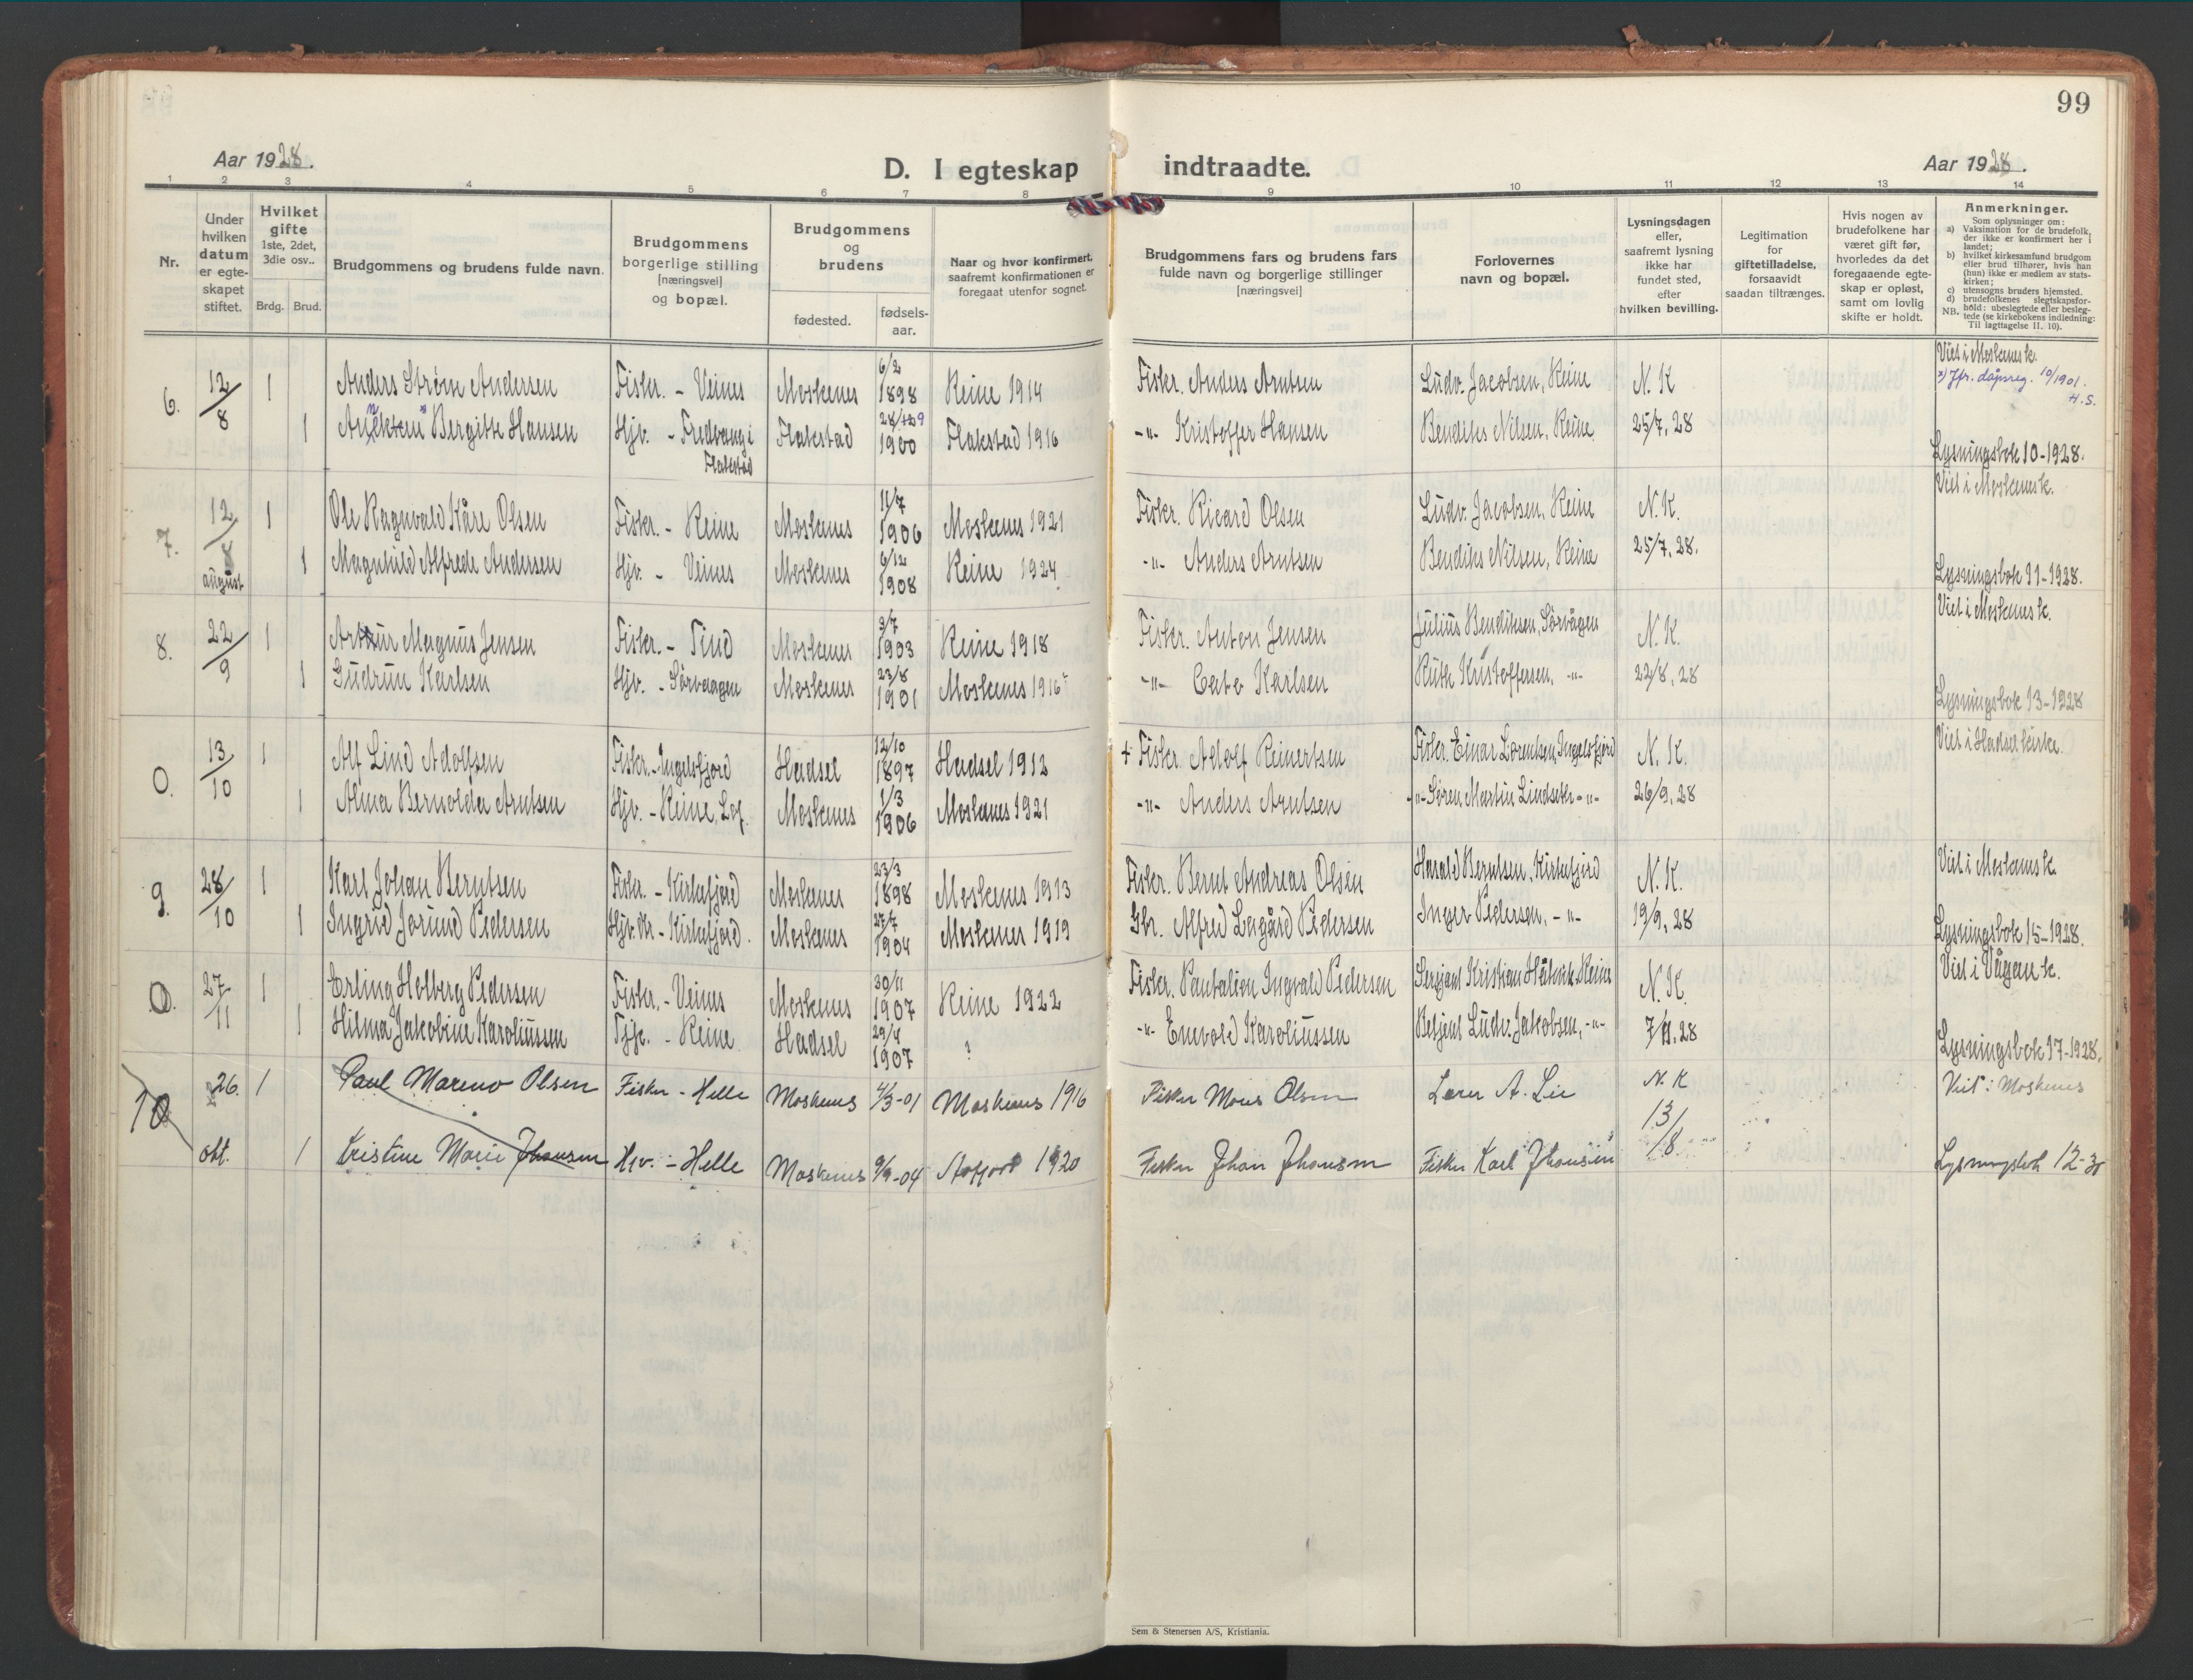 99
Aar 1928.
D. I egteskap indtraadte.
Aar 1928.
1 2 3 4 5 6 7 8 9 10 11 12 13 14
Nr.
Under
hvilken
datum
er egte-
skapet
stiftet.
Hvilket
gifte
1ste, 2det,
3die osv..
Brdg. Brud.
Brudgommens og brudens fulde navn.
Brudgommens
borgerlige stilling
[næringsvei]
og bopæl.
Brudgommens
og
brudens
fødested.
fødsels-
aar.
Naar og hvor konfirmert,
saafremt konfirmationen er
foregaat utenfor sognet.
Brudgommens fars og brudens fars
fulde navn og borgerlige stillinger
[næringsvei]
Forlovernes
navn og bopæl.
Lysningsdagen
eller,
saafremt lysning
ikke har
fundet sted,
efter
hvilken bevilling.
Legitimation
for
giftetilladelse,
forsaavidt
saadan tiltrænges.
Hvis nogen av
brudefolkene har
været gift før,
hvorledes da det
foregaaende egte-
skap er opløst,
samt om lovlig
skifte er holdt.
Anmerkninger.
Som oplysninger om:
a) Vaksination for de brudefolk,
der ikke er konfirmert her i
landet;
b) hvilket kirkesamfund brudgom
eller brud tilhører, hvis han
(hun) ikke er medlem av stats-
kirken;
c) utensogns bruders hjemsted.
d) brudefolkenes slegtskapsfor-
hold: ubeslegtede eller besleg-
NB. tede (se kirkebokens indledning:
Til Iagttagelse II. 10).
6. 12/8 1 Anders Strøm Andersen Fisker. - Veines Moskenes 6/2 1898 Reine 1914 Fisker. Anders Arntsen Ludv. Jacobsen, Reine N. K Viet i Moskenes k.
x) Jfr. dåpsreg. 10/1901. H.S.
1 Bergitte Hansen Hjv. - Fredvang i Flakstad Flakstad 28/ 9 1900 Flakstad 1916 -"- Kristoffer Hansen Bendiks Nilsen, Reine 25/7, 28
Lysningsbok 10-1928.
7. 12/8 august 1 Ole Ragnvald Kåre Olsen Fisker. - Reine Moskenes 11/7 1906 Moskenes 1921 Fisker. Ricard Olsen Ludv. Jacobsen, Reine N. K. Viet i Moskenes k.
1 Magnhild Alfrede Andersen Hjv. - Veines Moskenes 9/12 1908 Reine 1924 -"- Anders Arntsen Bendiks Nilsen, Reine 25/7, 28.
Lysningsbok 11-1928.
8. 22/9 1 Artur Magnus Jensen Fisker. - Tind Moskenes 3/7 1903 Reine 1918 Fisker. Anton Jensen Julius Bendiksen, Sørvågen N. K. Viet i Moskenes k.
1 Gudrun Karlsen Hjv. - Sørvaagen Moskenes 23/8 1901 Moskenes 1916 -"- Cato Karlsen Ruth Kristoffersen, -"- 22/8, 28
Lysningsbok 13-1928
0. 13/10 1 Alf Lind Adolfsen Fisker. - Ingelsfjord Hadsel 12/10 1897 Hadsel 1912 + Fisker. Adolf Reinertsen Fisker. Einar Lorentsen, Ingelsfjord N. K. Viet i Hadsel kirke.
1 Alma Bernolda Arntsen Hjv. - Reine, Lof. Moskenes 1/3 1906 Moskenes 1921 -"- Anders Arntsen -"- Søren Martin Lindseth -"- 26/9, 28
9. 28/10 1 Karl Johan Berntsen Fisker. - Kirkefjord Moskenes 23/3 1898 Moskenes 1913 Fisker. Bernt Andreas Olsen Harald Berntsen, Kirkefjord N. K. Viet i Moskenes k.
1 Ingrid Jorund Pedersen Hjv. - Kirkefjord. Moskenes 27/7 1904 Moskenes 1919 Gbr. Alfred Pedersen Inger Pedersen, -"- 19/9, 28
Lysningsbok 15-1928.
0. 27/11 1 Erling Holberg Pedersen Fisker. - Veines Moskenes 30/11 1907 Reine 1922 Fisker. Pantalion Ingvald Pedersen Kristian Reine N. K. Viet i Vågan k.
1 Hilma Jakobine Karoliussen Tjp. - Reine Hadsel 29/4 1907 ? -"- Enevold Karoliussen Betjent Ludv. Jakobsen, -"- 7/11. 28
Lysningsbok 17-1928.
10 26. okt. 1 Paul Mareno Olsen Fisker - Helle Moskenes 4/3-01 Moskenes 1916 Fisker Mons Olsen Lærer A. Lie N. K Viet i Moskenes
1 Kristine Marie Jhansen Hjv. - Helle Moskenes 9/9-04 1920 Fisker Johan Jhansen Fisker Karl Jhansen 13/8
Lysningsbok 12-
Sem & Stenersen A/S, Kristiania.